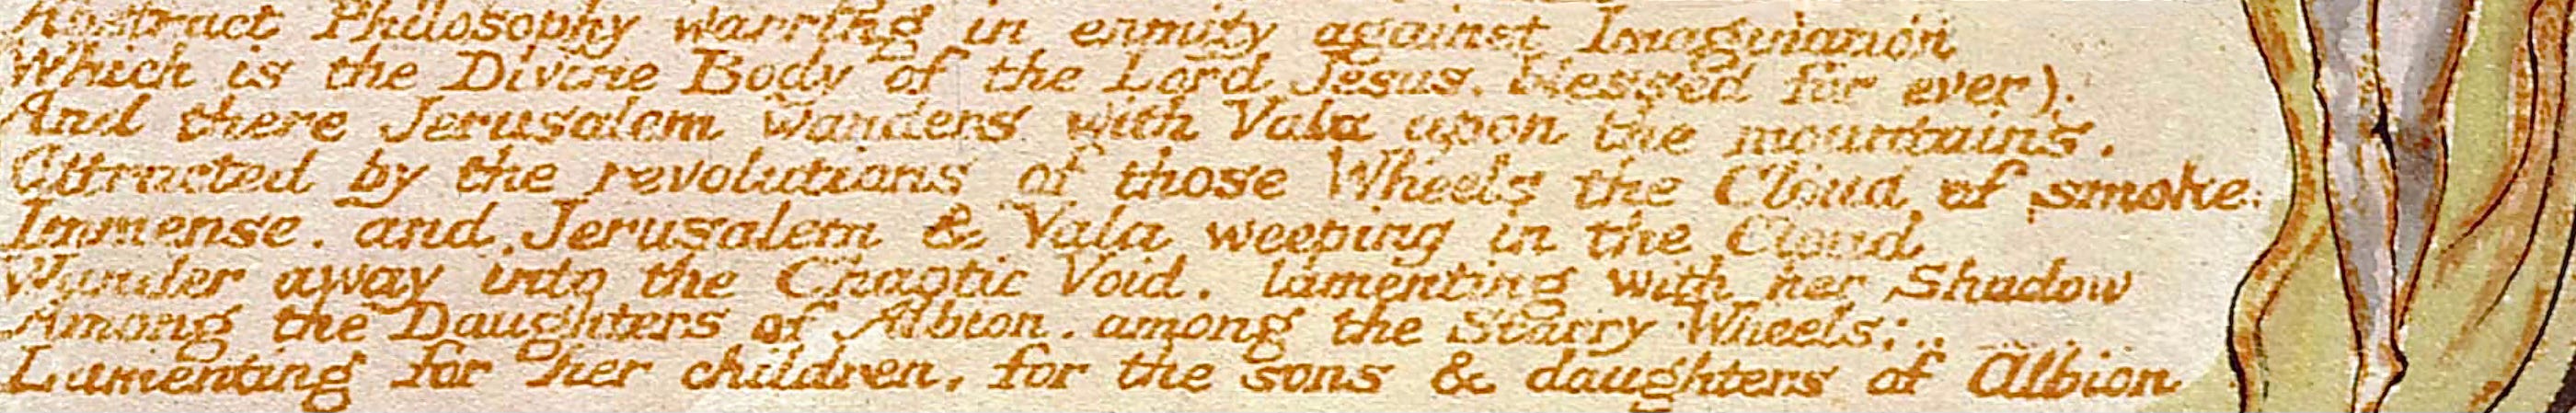 Abstract Philosophy warring in enmity against Imagination
Which is the Divine Body of the Lord Jesus. blessed for ever).
And there Jerusalem wanders with Vala upon the mountains.
Attracted by the revolutions of those Wheels the Cloud of smoke
Immense. and Jerusalem & Vala weeping in the Cloud
Wander away into the Chaotic Void. lamenting with her Shadow
Among the Daughters of Albion. among the Starry Wheels;
Lamenting for her children, for the sons & daughters of Albion